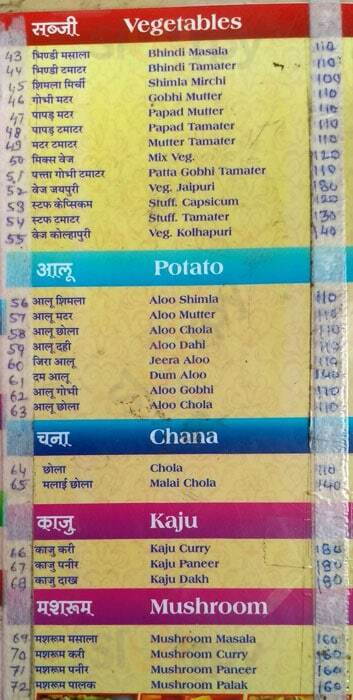 सब्जी Vegetables
43 भिण्डी मसाला Bhindi Masala 110
44 भिण्डी टमाटर Bhindi Tamater 110
45 शिमला मिर्ची Shimla Mirchi 100
46 गोभी मटर Gobhi Mutter 110
47 पापड़ मटर Papad Mutter 110
48 पापड़ टमाटर Papad Tamater 110
49 मटर टमाटर Mutter Tamater 110
50 मिक्स वेज Mix Veg. 120
51 पत्ता गोभी टमाटर Patta Gobhi Tamater 110
52 वेज जयपुरी Veg. Jaipuri 130
53 स्टफ केप्सिकम Stuff. Capsicum 120
54 स्टफ टमाटर Stuff. Tamater 130
55 वेज कोल्हापुरी Veg. Kolhapuri 140
आलू Potato
56 आलू शिमला Aloo Shimla 110
57 आलू मटर Aloo Mutter 110
58 आलू छोला Aloo Chola 110
59 आलू दही Aloo Dahi 110
60 जिरा आलू Jeera Aloo 110
61 दम आलू Dum Aloo 140
62 आलू गोभी Aloo Gobhi 110
63 आलू छोला Aloo Chola 110
चना Chana
64 छोला Chola 110
65 मलाई छोला Malai Chola 140
काजु Kaju
66 काजु करी Kaju Curry 180
67 काजु पनीर Kaju Paneer 180
68 काजु दाख Kaju Dakh 180
मशरूम Mushroom
69 मशरूम मसाला Mushroom Masala 160
70 मशरूम करी Mushroom Curry 160
71 मशरूम पनीर Mushroom Paneer 160
72 मशरूम पालक Mushroom Palak 160